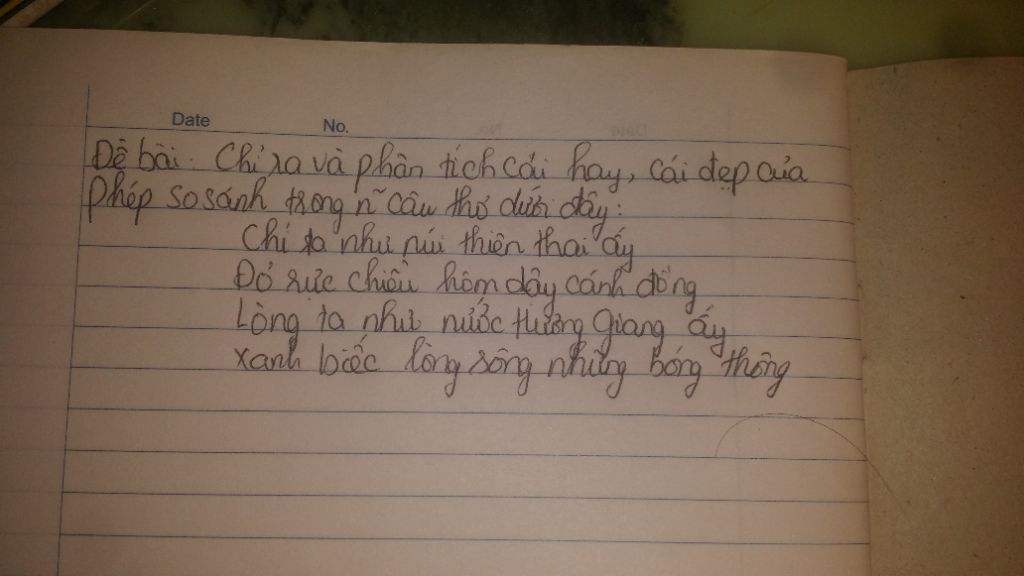 Date No.
Đề bài: Chỉ ra và phân tích cái hay, cái đẹp của
phép so sánh trong ~ câu thơ dưới đây:
Chí ta như núi thiên thai ấy
Đỏ rực chiều hôm dậy cánh đồng
Lòng ta như nước Hương Giang ấy
xanh biếc lòng sông những bóng thông